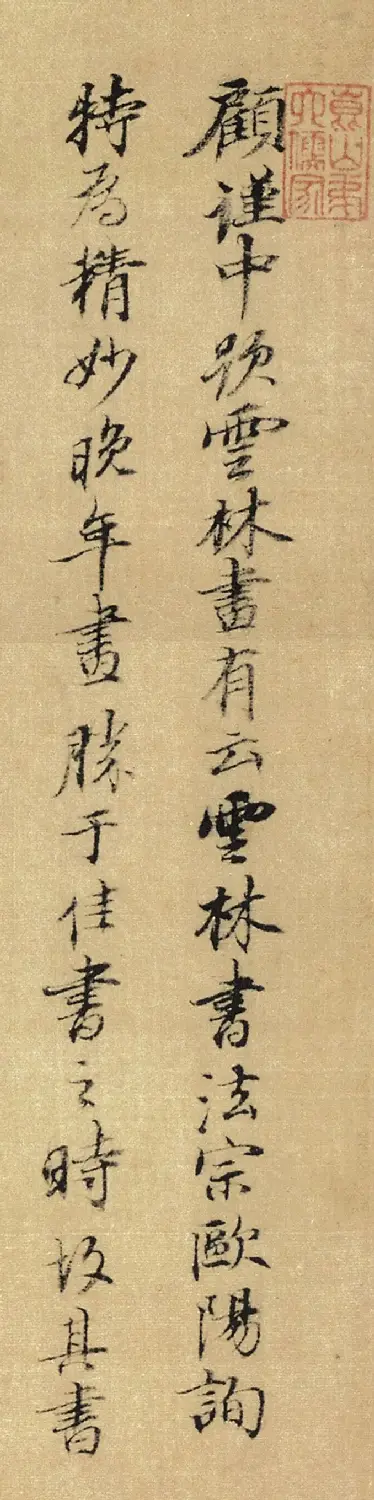 顧謹中題雲林畫有云雲林書法宗歐陽詢
特為精妙晚年畫勝于佳書之時故其書